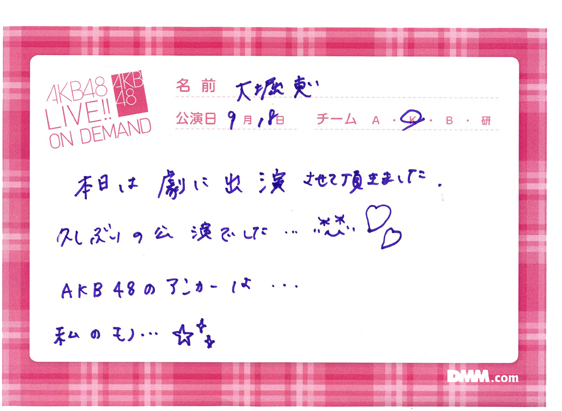 AKB48
LIVE!!
ON DEMAND
AKB
48
名前 大堀恵
公演日 9月18日 チーム A・K・B・研
本日は 劇に 出演 させて頂きました.
久しぶりの公演でした...
AKB48のアンカーは...
私のモノ...
DMM.com